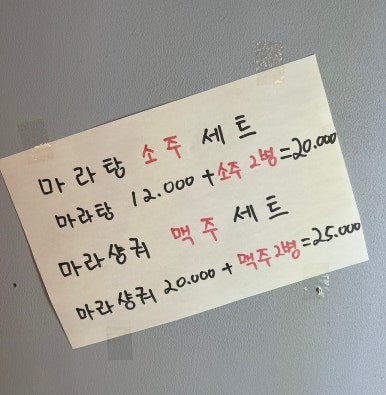 마라탕 소주 세트
마라탕 12.000 + 소주 2병 = 20.000
마라샹궈 맥주 세트
마라샹궈 20.000 + 맥주 2병 = 25.000